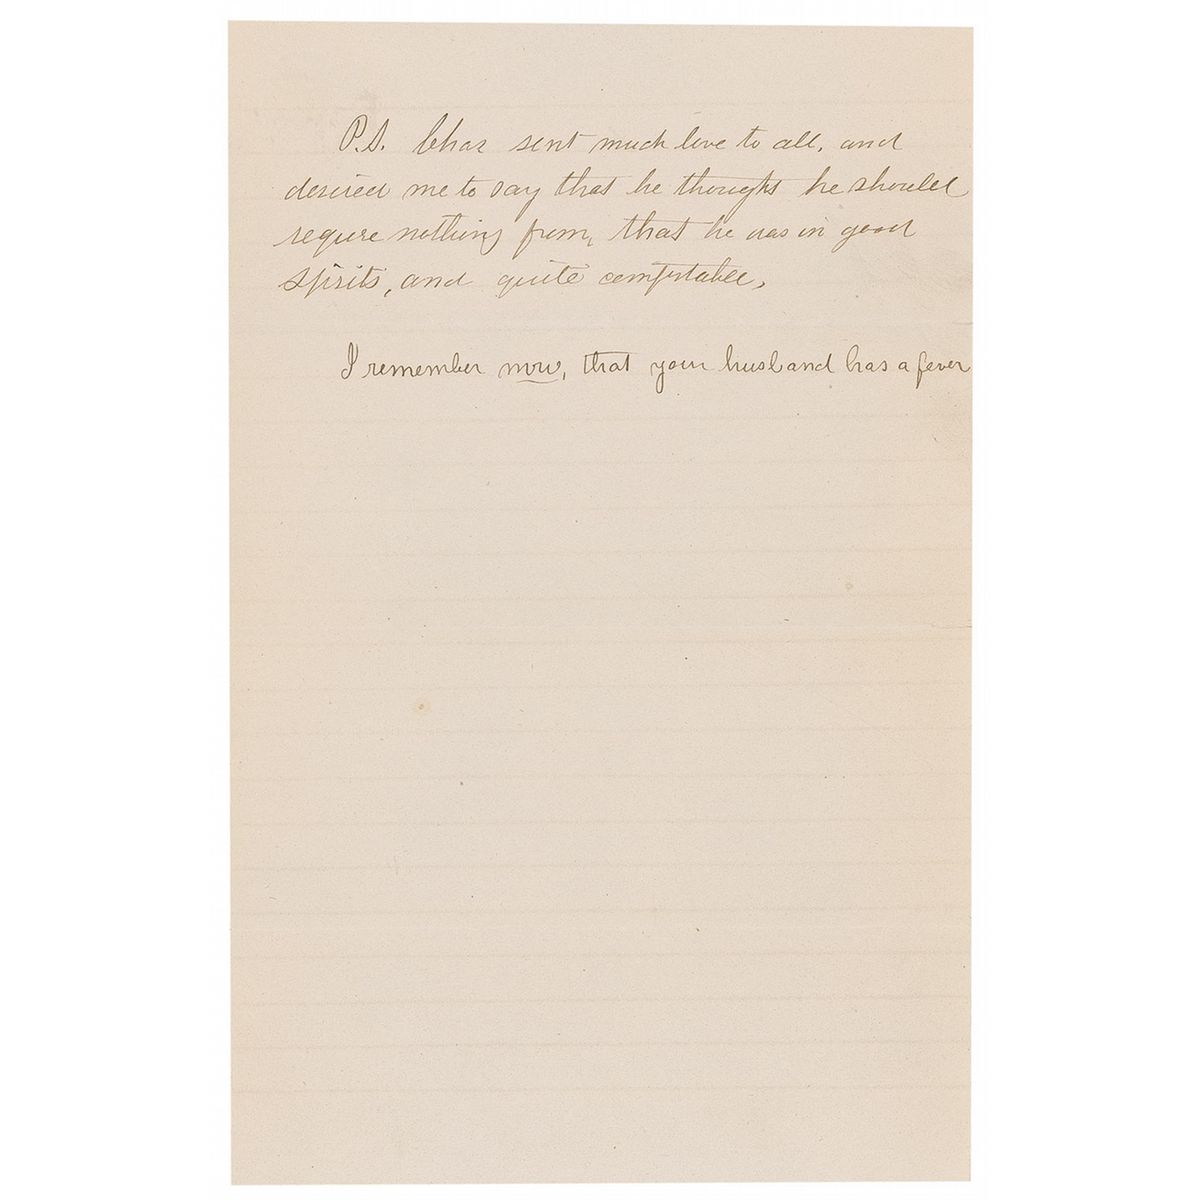 P.S. Chas sent much love to all, and
desired me to say that he thought he should
requre nothing from, that he was in good
spirits, and quite comfortable,
I remember now, that your husband has a fever